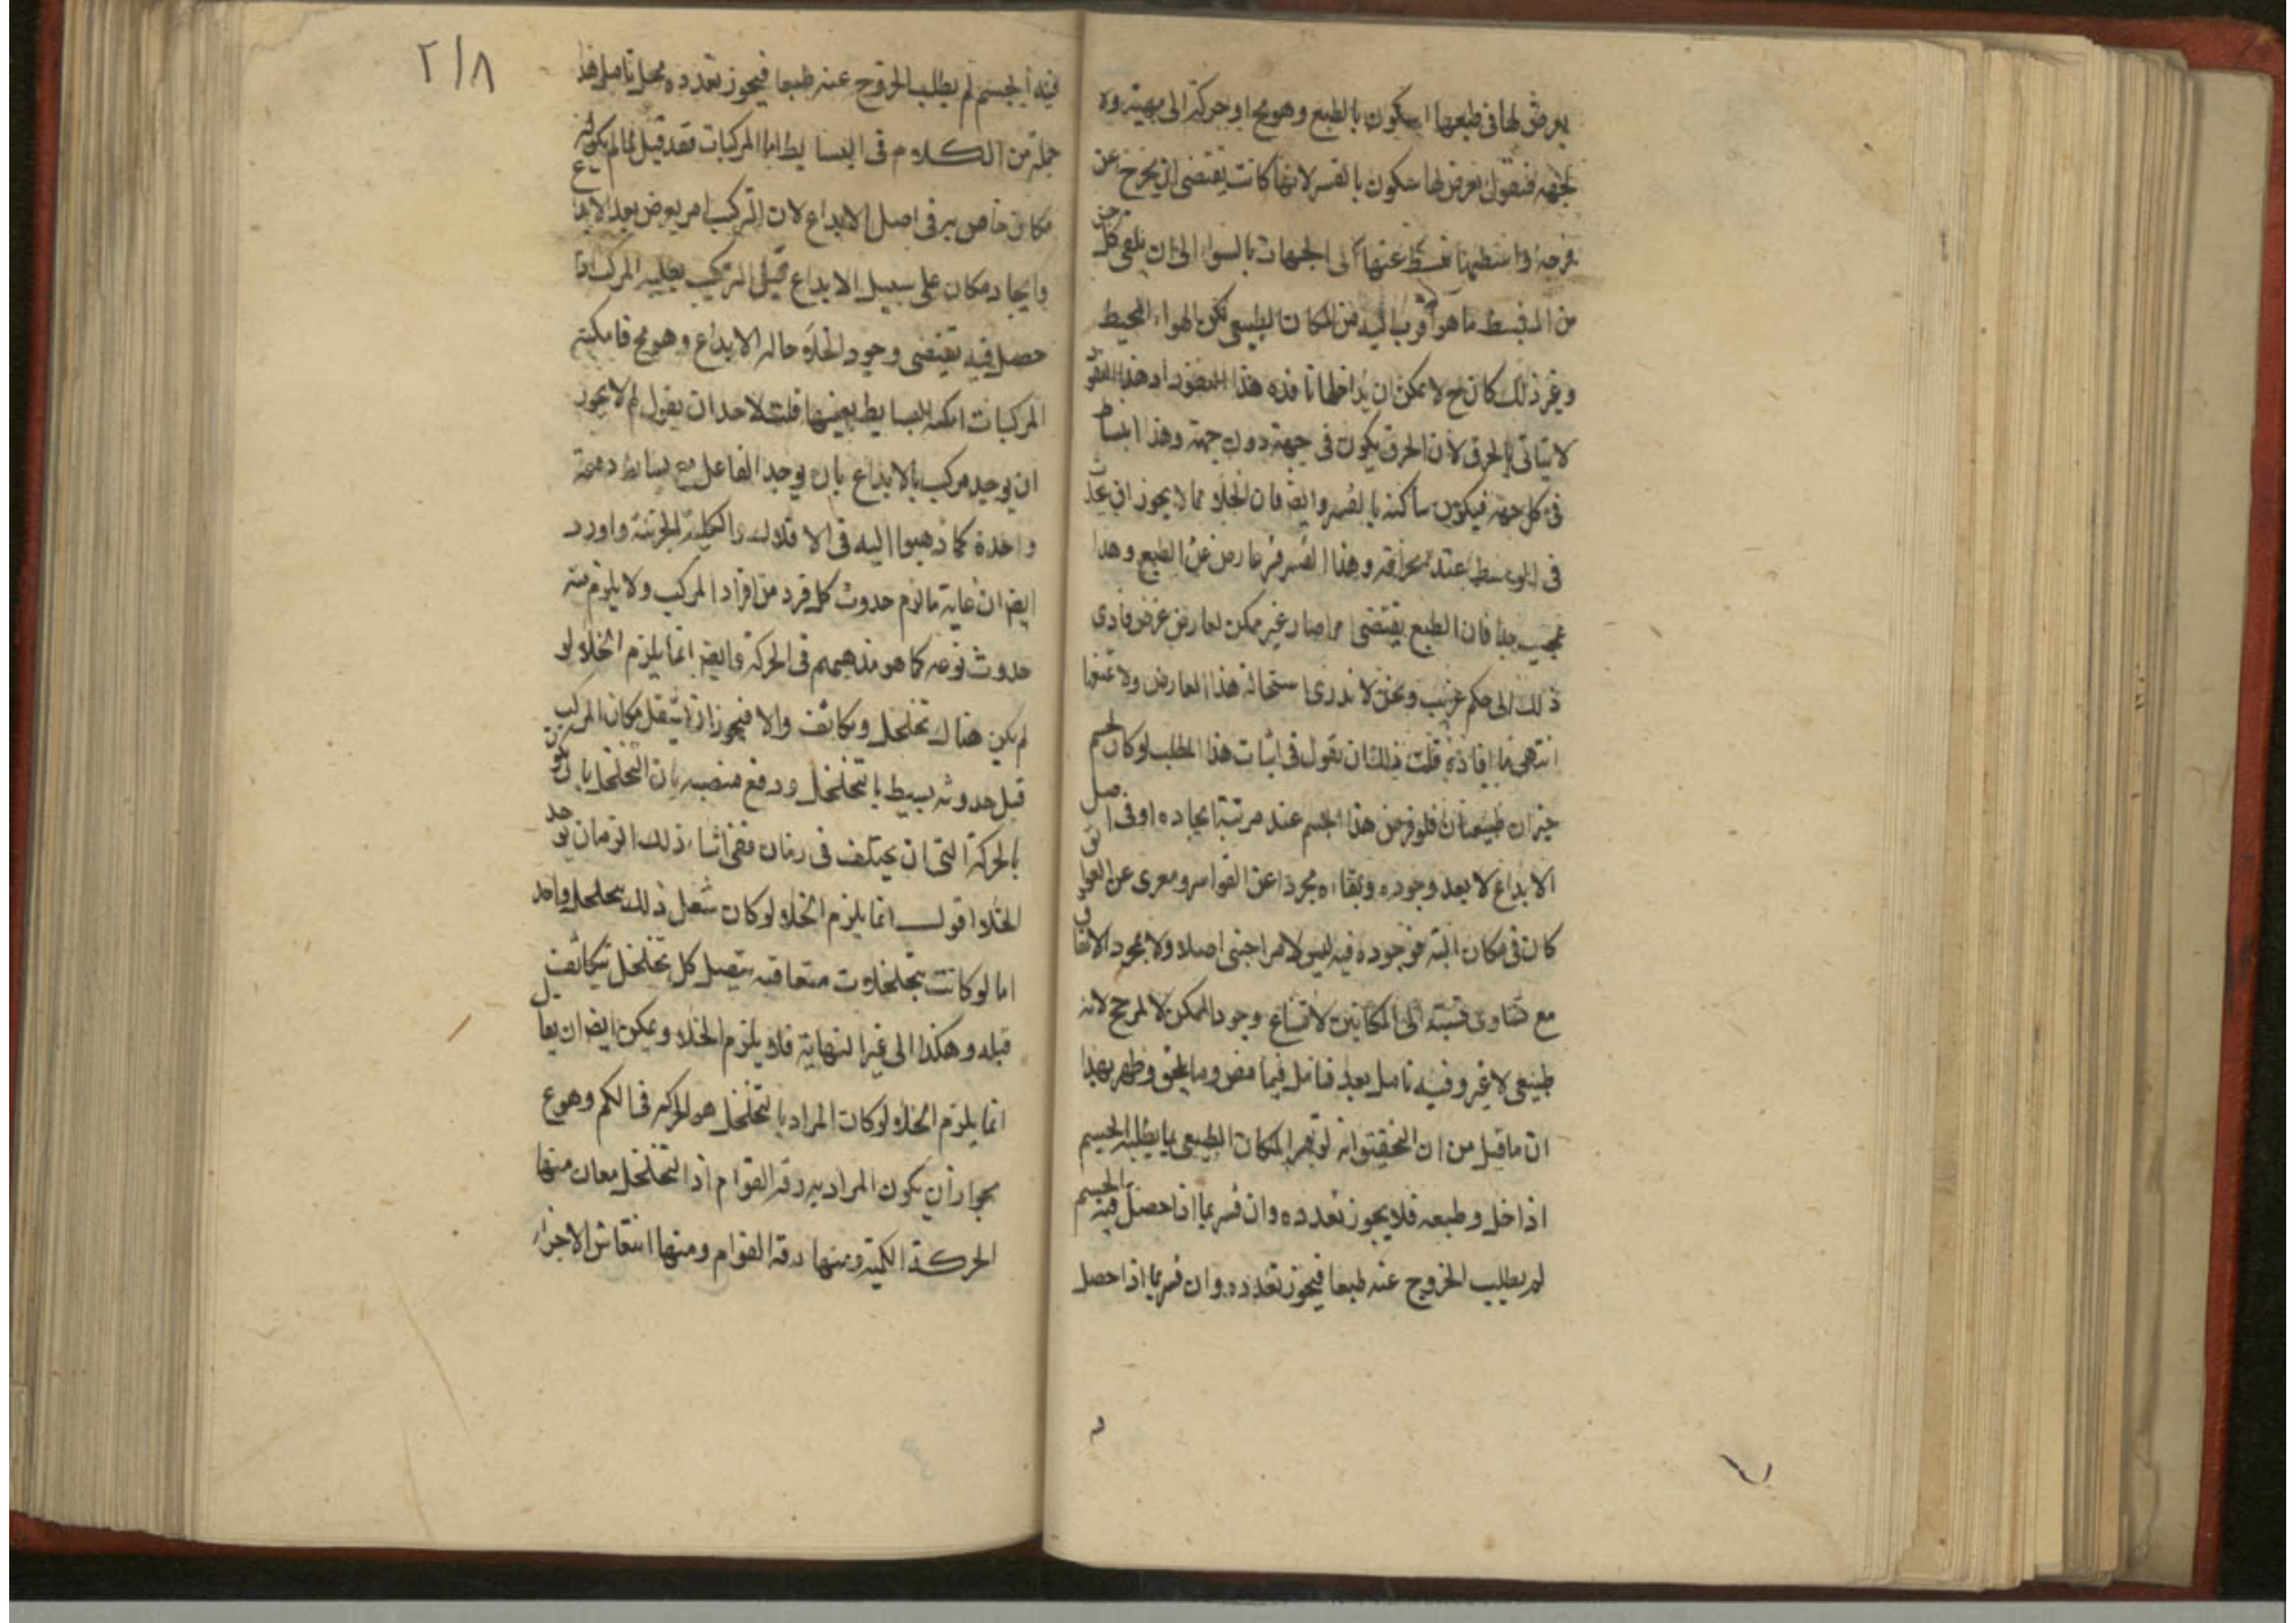 يعرض لها في طبعها السكون بالطبع وهو مح او حركة الى جهة ولا
لجهة فنقول يعرض لها سكون بالقسر لانها كانت تقتضى ان يخرج عن
فرجة واسطها الى الجهات بالسوا الى ان يلقى كل جز
من المنبسط ما هو اقرب اليه من المكان الطبيعي لكن الهواء المحيط
وغير ذلك كان ح لا يمكن ان يداخلها نافذه هذا النفوذ اذ هذا النفوذ
لا يتاتى بالخرق لان الخرق يكون في جهة دون جهة وهذا
في كل جهة فيكون ساكنة بالقسر وايضا فان الخلاء مما لا يجوز ان يحدث
في الوسط عند وهذا القسر عارض عن الطبع وهذا
عجيب جدا فان الطبع يقتضى امرا صار غير ممكن لعارض عرض فادى
ذلك الى حكم غريب ونحن لا ندرى استحالة هذا العارض ولا نمنعها
انتهى ما افاده قلت فلك ان تقول في اثبات هذا المطلب لو كان لجسم
حيزان طبيعيان فلو فرض هذا الجسم عند مرتبة ايجاده او في اصل
الابداع لا بعد وجوده وبقاءه مجردا عن القواسر ومعرى عن العوائق
كان في مكان البتة فوجوده فيه ليس لامر اجنبى اصلا ولا بمجرد الاتفاق
مع تساوى نسبته الى المكانين لامتناع وجود الممكن لا لمرجح لانه
طبيعى لا غير وفيه تامل بعد فتامل فيما مضى وما يلحق وظهر بهذا
ان ما قيل من ان التحقيق انه لو فسر المكان الطبيعي بما يطلبه الجسم
اذا خلى وطبعه فلا يجوز تعدده وان فسر بما اذا حصل فيه الجسم
لم يطلب الخروج عنه طبعا فيجوز تعدده وان فسر بما اذا حصل
٢/٨
فيه الجسم لم يطلب الخروج عنه طبعا فيجوز تعدده محل تامل هذا
جملة من الكلام في البسايط اما المركبات فقد قيل لما لم يكن
مكان خاص به في اصل الابداع لان التركيب امر يعرض بعد الابداع
وايجاد مكان على سبيل الابداع قبل التركيب يطلبه المركب اذا
حصل فيه يقتضى وجود الخلاء حالة الابداع وهو مح فامكنة
المركبات امكنة البسايط بعينها قلت لاحد ان يقول لم لا يجوز
ان يوجد مركب بالابداع بان يوجد الفاعل مع بسايط دفعة
واحدة كما ذهبوا اليه في الافلاك الكلية الجزئية واورد
ايضا ان غاية ما لزم حدوث كل فرد من افراد المركب ولا يلزم منه
حدوث نوعه كما هو مذهبهم في الحركة وايضا انما يلزم الخلاء لو
لم يكن هناك تخلخل وتكاثف والا فيجوز ان يشغل مكان المركب
قبل حدوثه بسيط بالتخلخل ودفع بان التخلخل يكون
بالحركة التي في زمان ففي اثناء ذلك الزمان يوجد
الخلاء اقول انما يلزم الخلاء لو كان شغل ذلك بتخلخل واحد
اما لو كانت بتخلخلات متعاقبة يتصل كل تخلخل بتكاثف
قبله وهكذا الى غير النهاية فلا يلزم الخلاء ويمكن ايضا ان يقال
انما يلزم الخلاء لو كان المراد بالتخلخل هو الحركة في الكم وهو مع
بجواز ان يكون المراد به رقة القوام اذ التخلخل معان منها
الحركة الكمية ومنها رقة القوام ومنها انتفاش الاجزاء